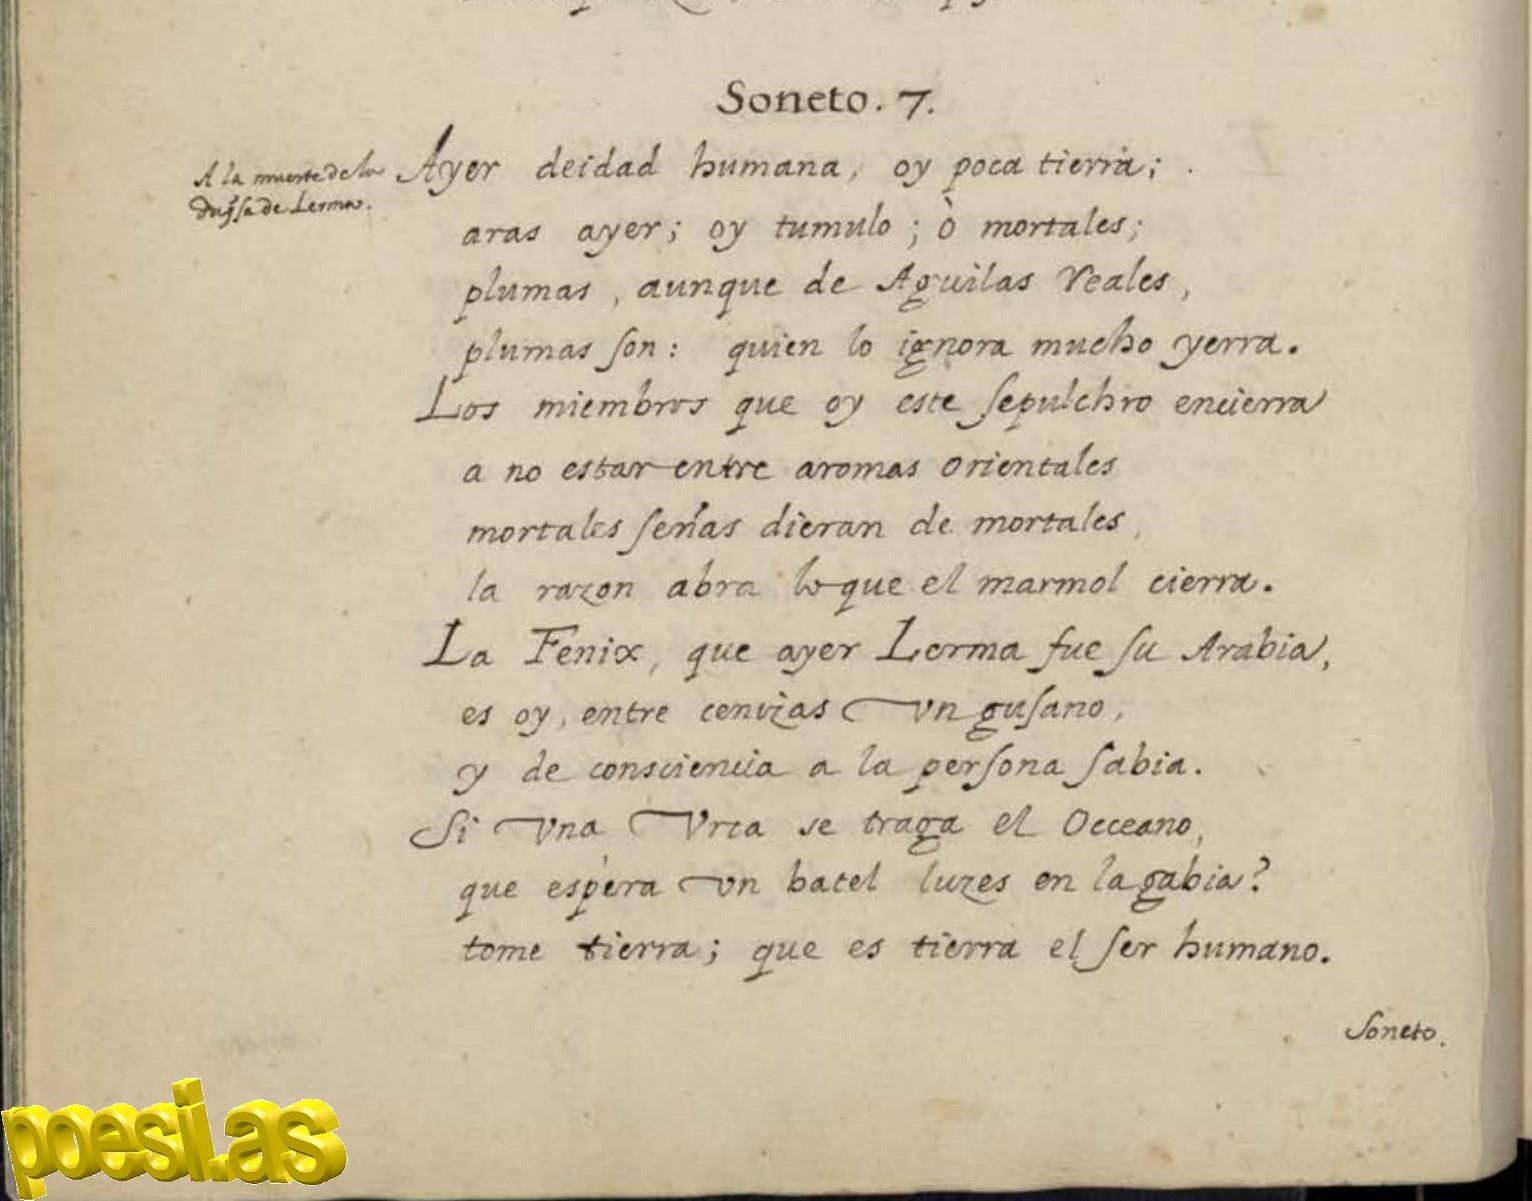 Soneto. 7.
A la muerte de la
Duqsa de Lerma.
Ayer deidad humana, oy poca tierra;
aras ayer; oy tumulo; ò mortales;
plumas, aunque de Aguilas reales,
plumas son: quien lo ignora mucho yerra.
Los miembros que oy este sepulchro encierra
a no estar entre aromas orientales
mortales señas dieran de mortales,
la razon abra lo que el marmol cierra.
La Fenix, que ayer Lerma fue su Arabia,
es oy, entre cenizas vn gusano,
y de consciencia a la persona sabia.
Si vna Vrca se traga el Occeano,
que espera vn batel luzes en la gabia?
tome tierra; que es tierra el ser humano.
Soneto.
poesi.as